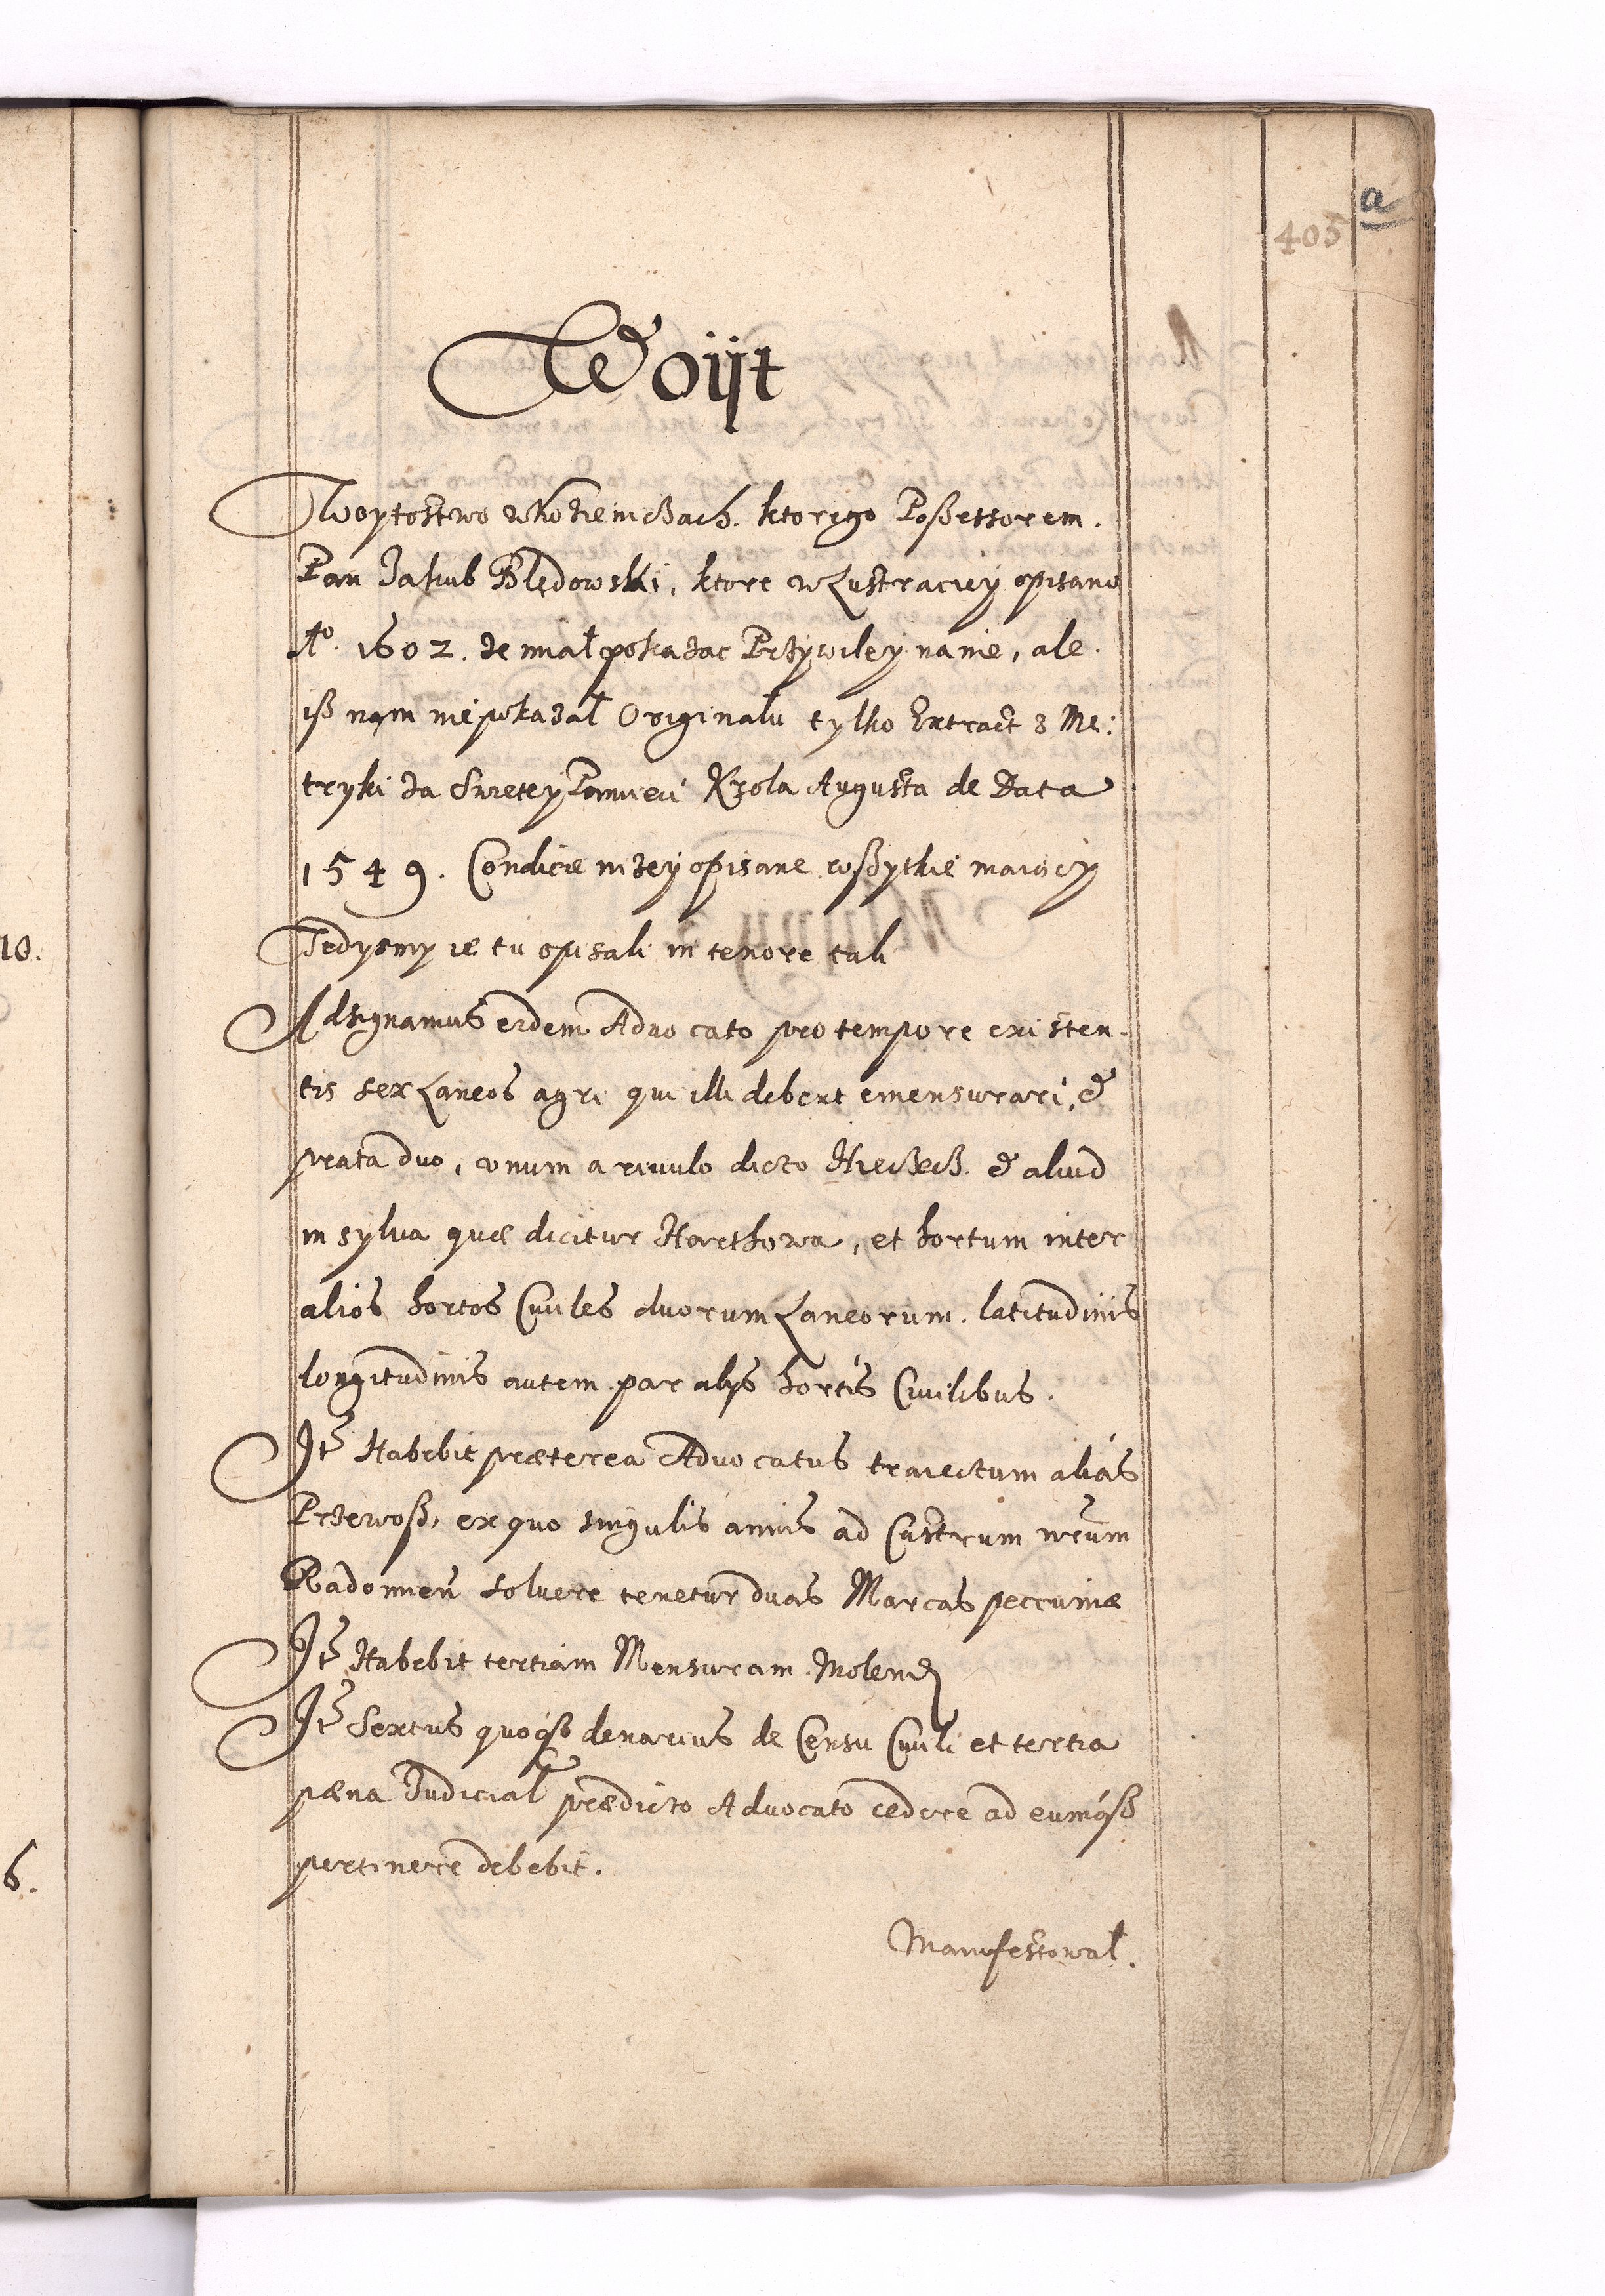 a
405
Woijt
Woytostwo w Kozienicach. ktorego Poßessorem.
Pan Jakub Blędowski, ktore w Lustraciey opisano
Aº. 1602. ze miał pokazac Przywiley na nie, ale.
iß nam nie pokazał Originału tylko Extract z Me:
tryki za Swietey Pamieci Krola Augusta de Data
1549. Condicie w tey opisane wßytkie maiącÿ
Tedysmy ie tu opisali in tenore tali
Adsignamus eidem Aduocato pro tempore existen-
tis sex Laneos agri qui illi debent emensurari, &
prata duo, vnum a riuulo dicto & aliud
in sylua quæ dicitur Harthowa, et hortum inter
alios hortos Ciuiles duorum Laneorum. latitudinis
longitudinis autem par alys hortis Ciuilibus.
Itẽ Habebit præterea Aduocatus traiectum aliás
Przewoß, ex quo singulis annis ad Castrum nr̃um
Radomien̄ soluere tenetur duas Marcas peccuniæ
Itẽ Habebit tertiam Mensuram Molend
Itẽ Sextus quoqꝫ denarius de Censu Ciuili et tertia
pæna Judicial prædicto Aduocato cedere ad eumqꝫ
pertinere debebit.
Manifestował.
10.
6.